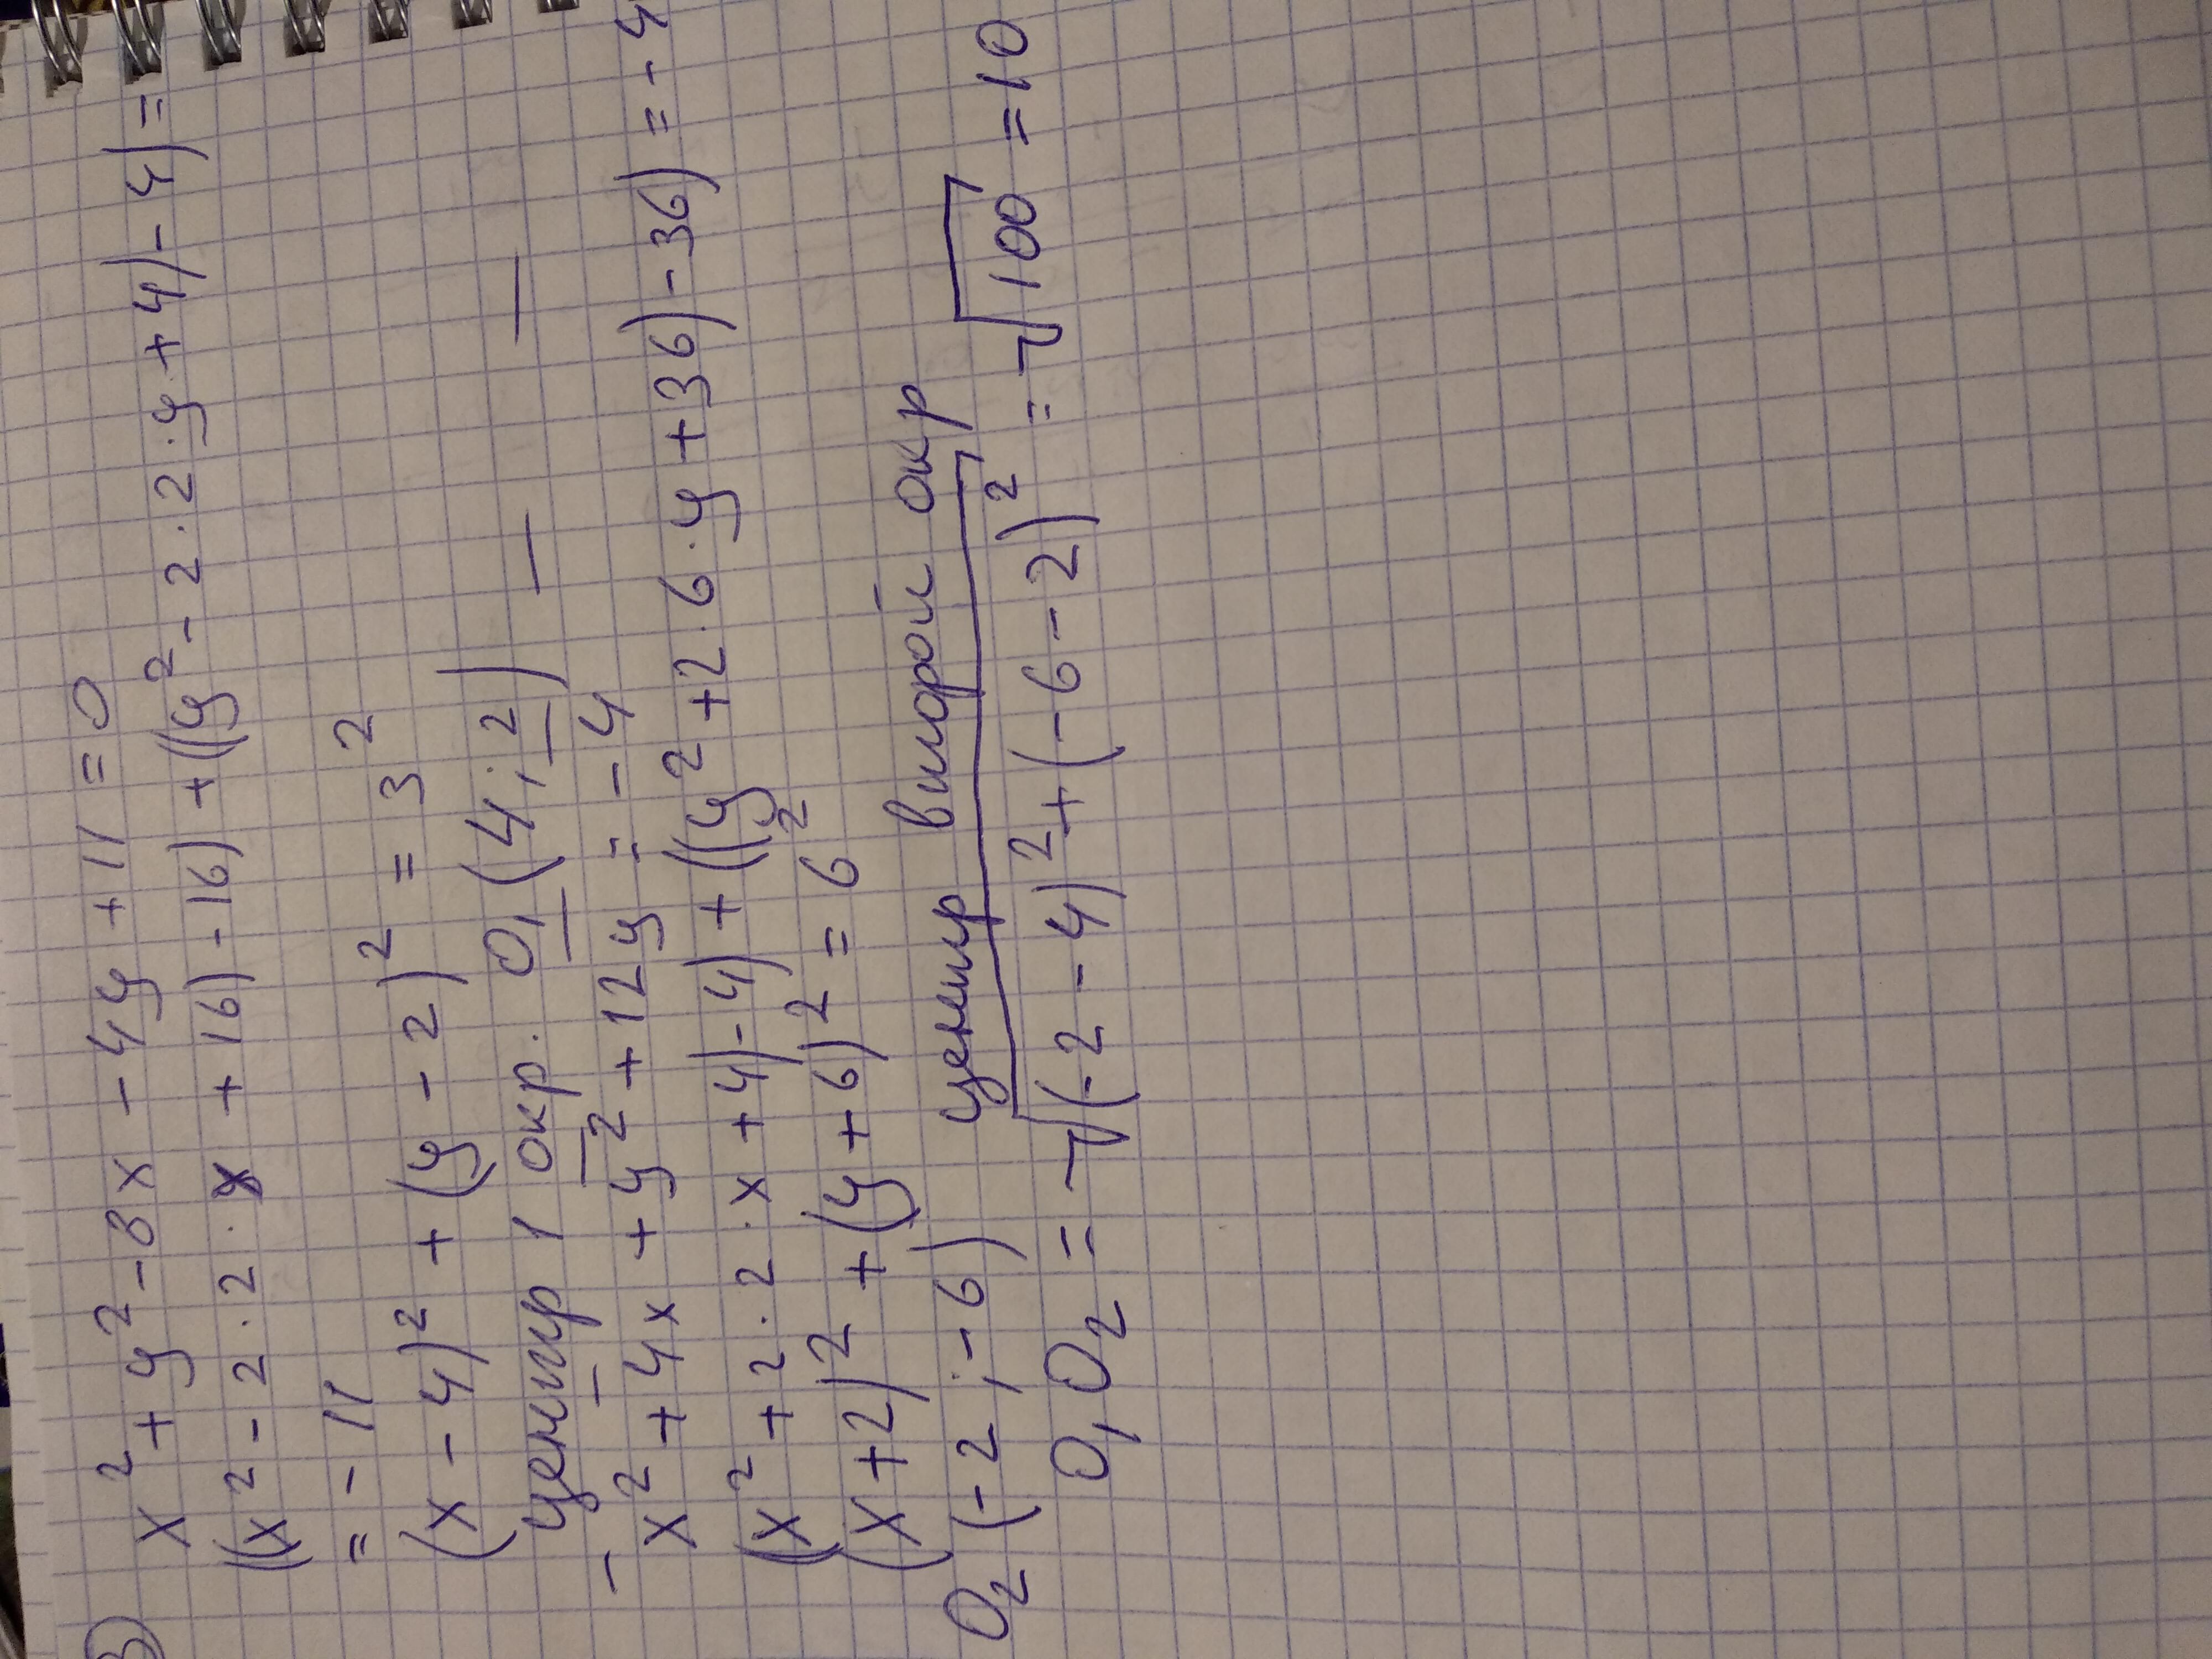 3)
x² + y² - 8x - 4y + 11 = 0
((x² - 2 · 2 · x + 16) - 16) + ((y² - 2 · 2 · y + 4) - 4) =
= - 11
(x - 4)² + (y - 2)² = 3²
центр 1 окр. O₁ (4; 2)
x² + 4x + y² + 12y = - 4
((x² + 2 · 2 · x + 4) - 4) + ((y² + 2 · 6 · y + 36) - 36) = - 4
(x + 2)² + (y + 6)² = 6²
O₂ (- 2 ; - 6) центр второй окр
O₁O₂ = √(-2 - 4)² + (-6 - 2)² = √100 = 10